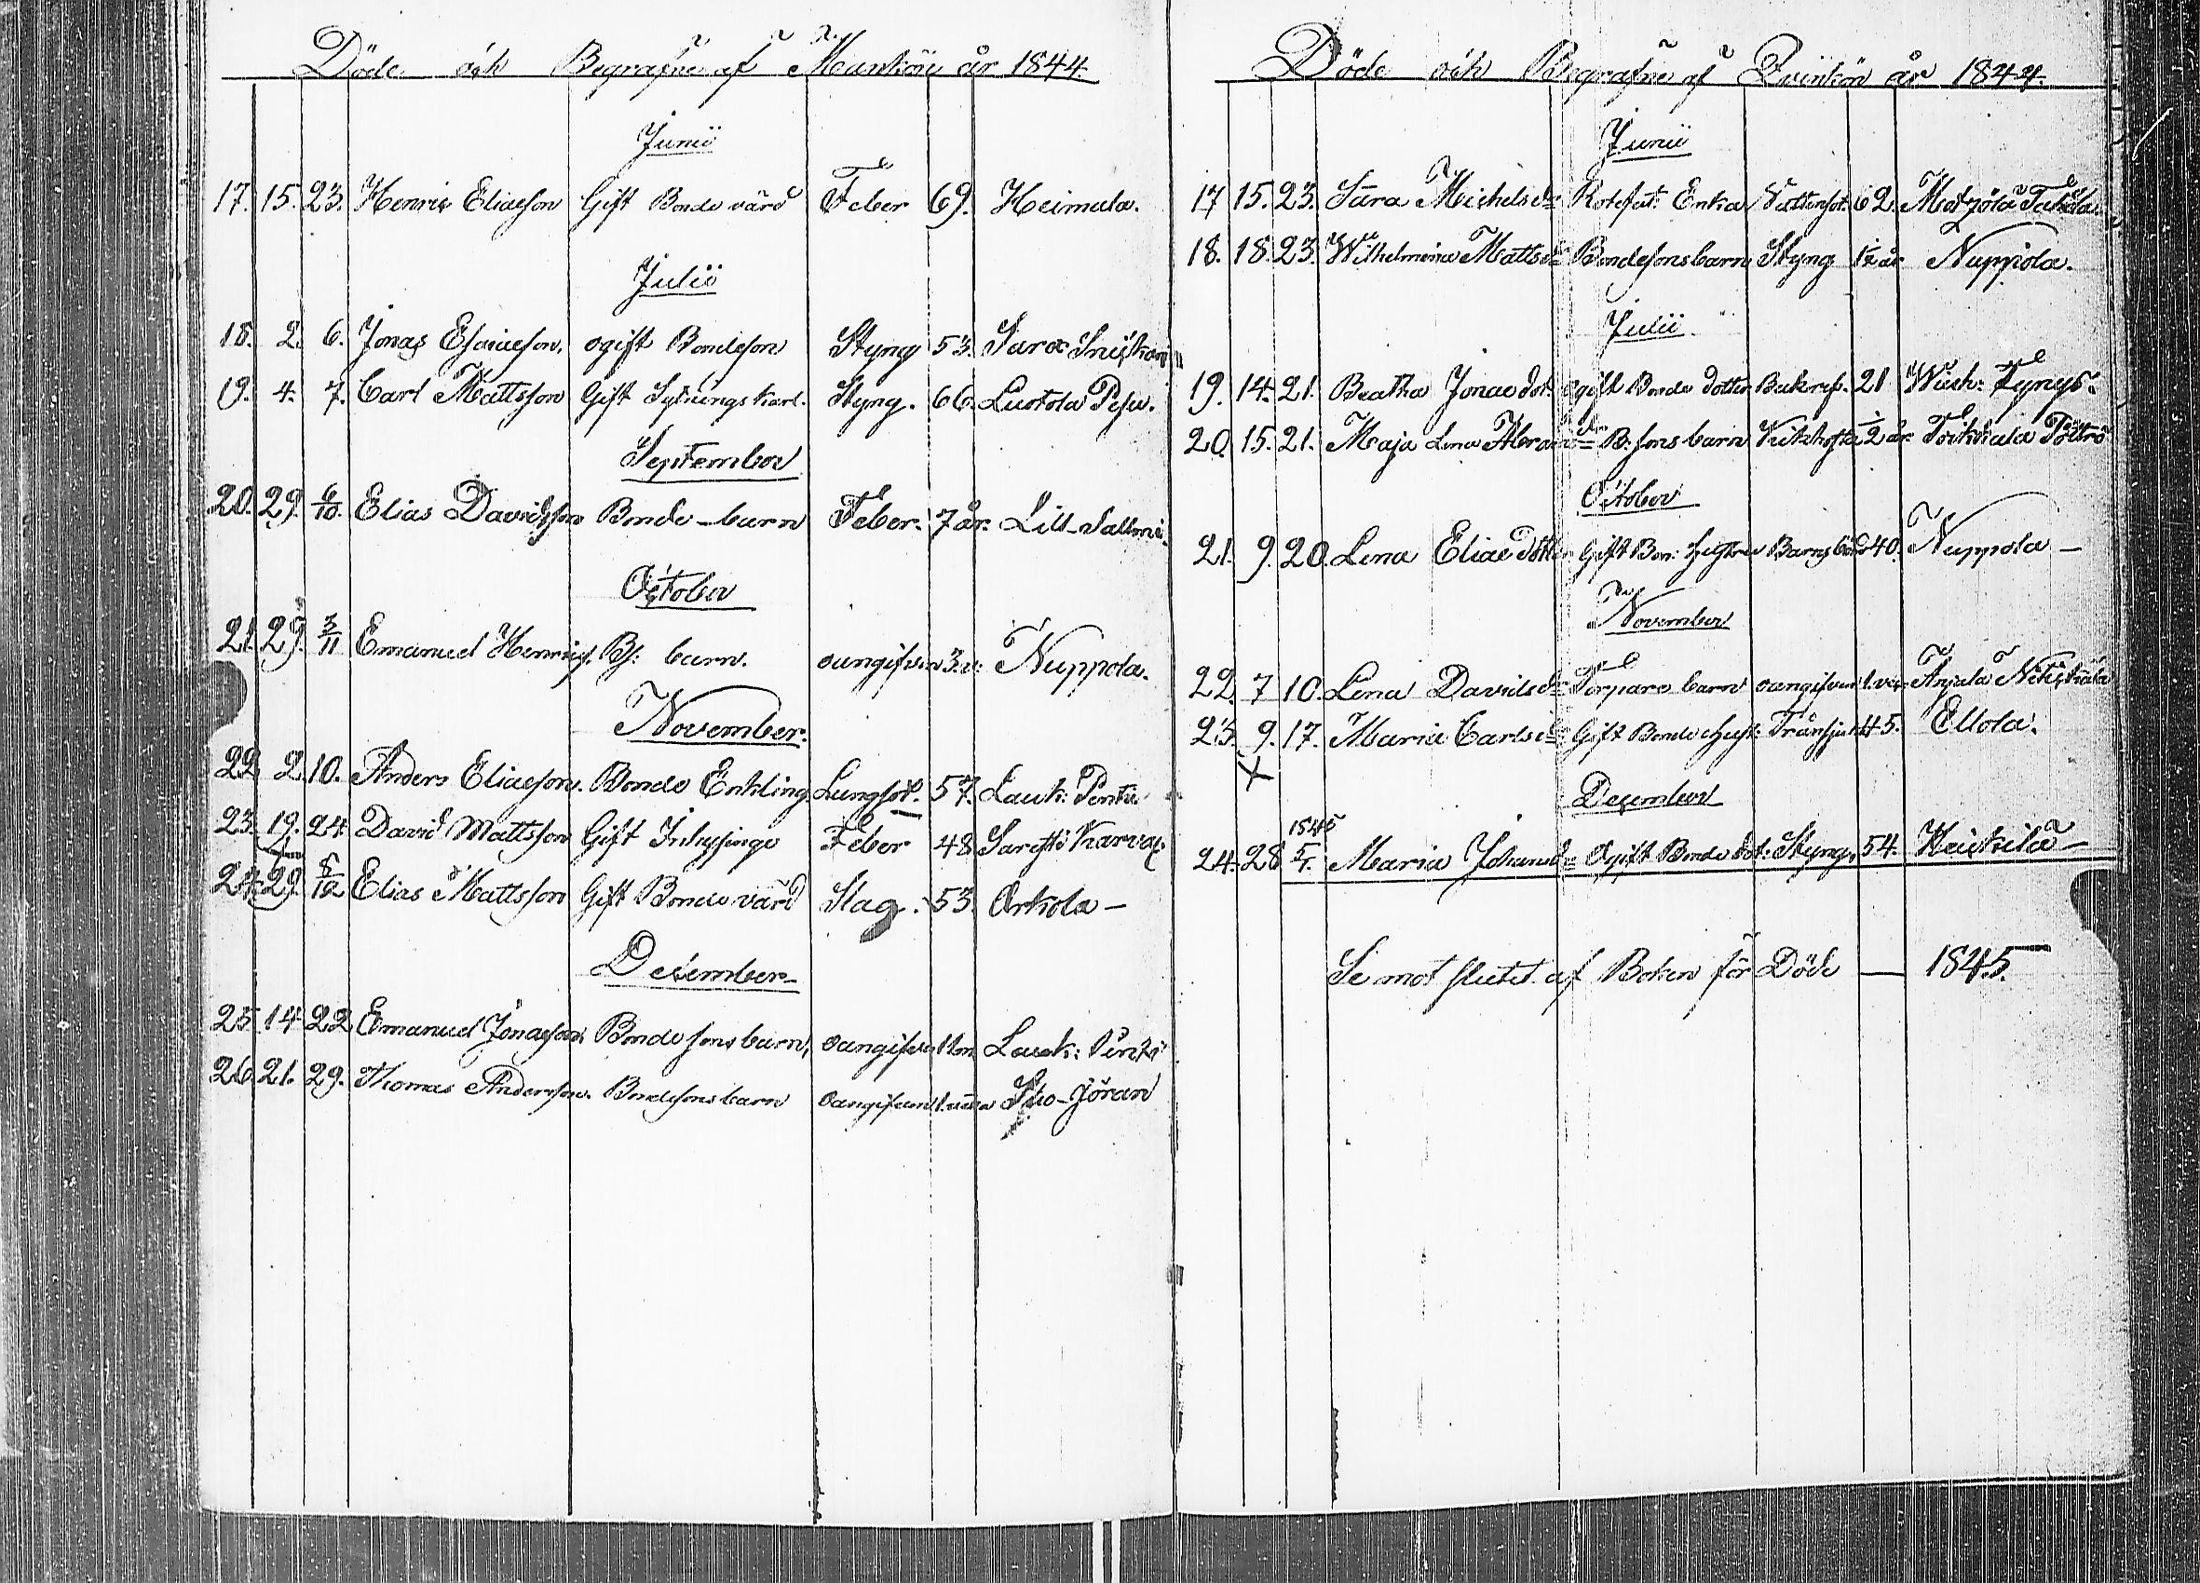 Döde och Begrafne af Mankön år 1844.
Junii
17. 15. 23. Henric Eliasson Gift Bonde värd Feber 69. Heimala.
Julii
18. 2. 6. Jonas Esaiasson. ogift Bondeson Styng 53. Sarax
19. 4. 7. Carl Mattsson Gift Sytningskarl. Styng. 66. Luotola Pesu.
September
20. 29. 6/10. Elias Davidsson Bonde-barn Feber. 7 år. Lill-Sallmi.
October
21. 29. 3/11 Emanuel Henrics. Bs: barn. oangifven 3. v: Nuppola.
November.
22. 2. 10. Anders Eliasson. Bonde Enkling Lungsot. 57. Lauk: Pentti
23. 19. 24. David Mattsson Gift Inhysinge Feber 48.
24. 29. 6/12 Elias Mattsson Gift Bonde värd Slag. 53. Orkola —
December
25. 14. 22. Emanuel Jonasson. Bonde sons barn, oangifven Lauk:
26. 21. 29. Thomas Andersson. Bondesons barn oangifven Sto-Jöran
Döde och Begrafne af Qvinkön år 1844.
Junii
17 15. 23. Sara Michelsdr Rotefat: Enka Vattensot. 62.
18. 18. 23. Wilhelmina Mattsdr Bondesonsbarn Styng 1/2 år Nuppola.
Julii
19. 14. 21. Beatha Jonaedot. ogift Bonde dotter 21
20. 15. 21. Maja Lena B: sons barn Kikhosta 1/2 år
October
21. 9. 20. Lena Eliaedotter Gift Bon: hustru Barnsbörd 40. Nuppola —
November
22. 7 10. Lena Davidsdr Torpare barn oangifven 1. vec: Anjala
23. 9. 17. Maria Carlsdr Gift Bonde hust: Trånsjuk 45. Ellola.
December
24. 28 1845 5/1. Maria Johansdr Ogift Bonde dot: Styng. 54. Heickilä —
Se mot slutet af Boken för Döde — 1845.